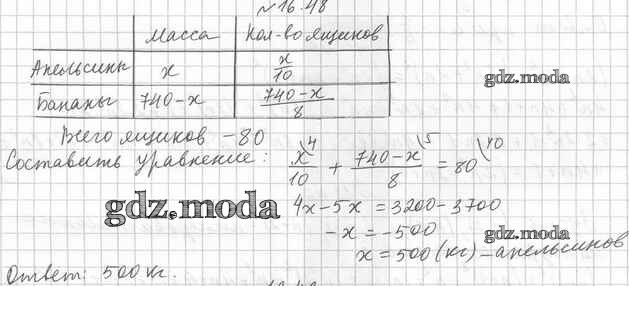 №16.48
Масса Кол-во ящиков
Апельсины x x/10
Бананы 740-x 740-x/8
gdz.moda
Всего ящиков -80
Составить уравнение: x\4/10 + 740-x\5/8 = 80\40
gdz.moda
4x-5x = 3200-3700
-x = -500
gdz.moda
x = 500 (кг) - апельсинов
Ответ: 500 кг.